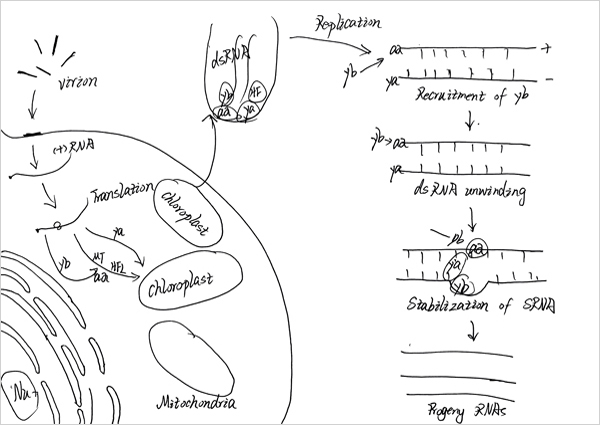 virion
(+)RNA
Translation
ya
MT
HEL
yb
aa
Nu
dsRNA
yb
HEL
aa
ya
chloroplast
chloroplast
Mitochondria
Replication
aa
+
yb
ya
-
Recruitment of yb
yb
aa
ya
dsRNA unwinding
pb
aa
ya
yb
Stabilization of SRNA
Progeny RNAs